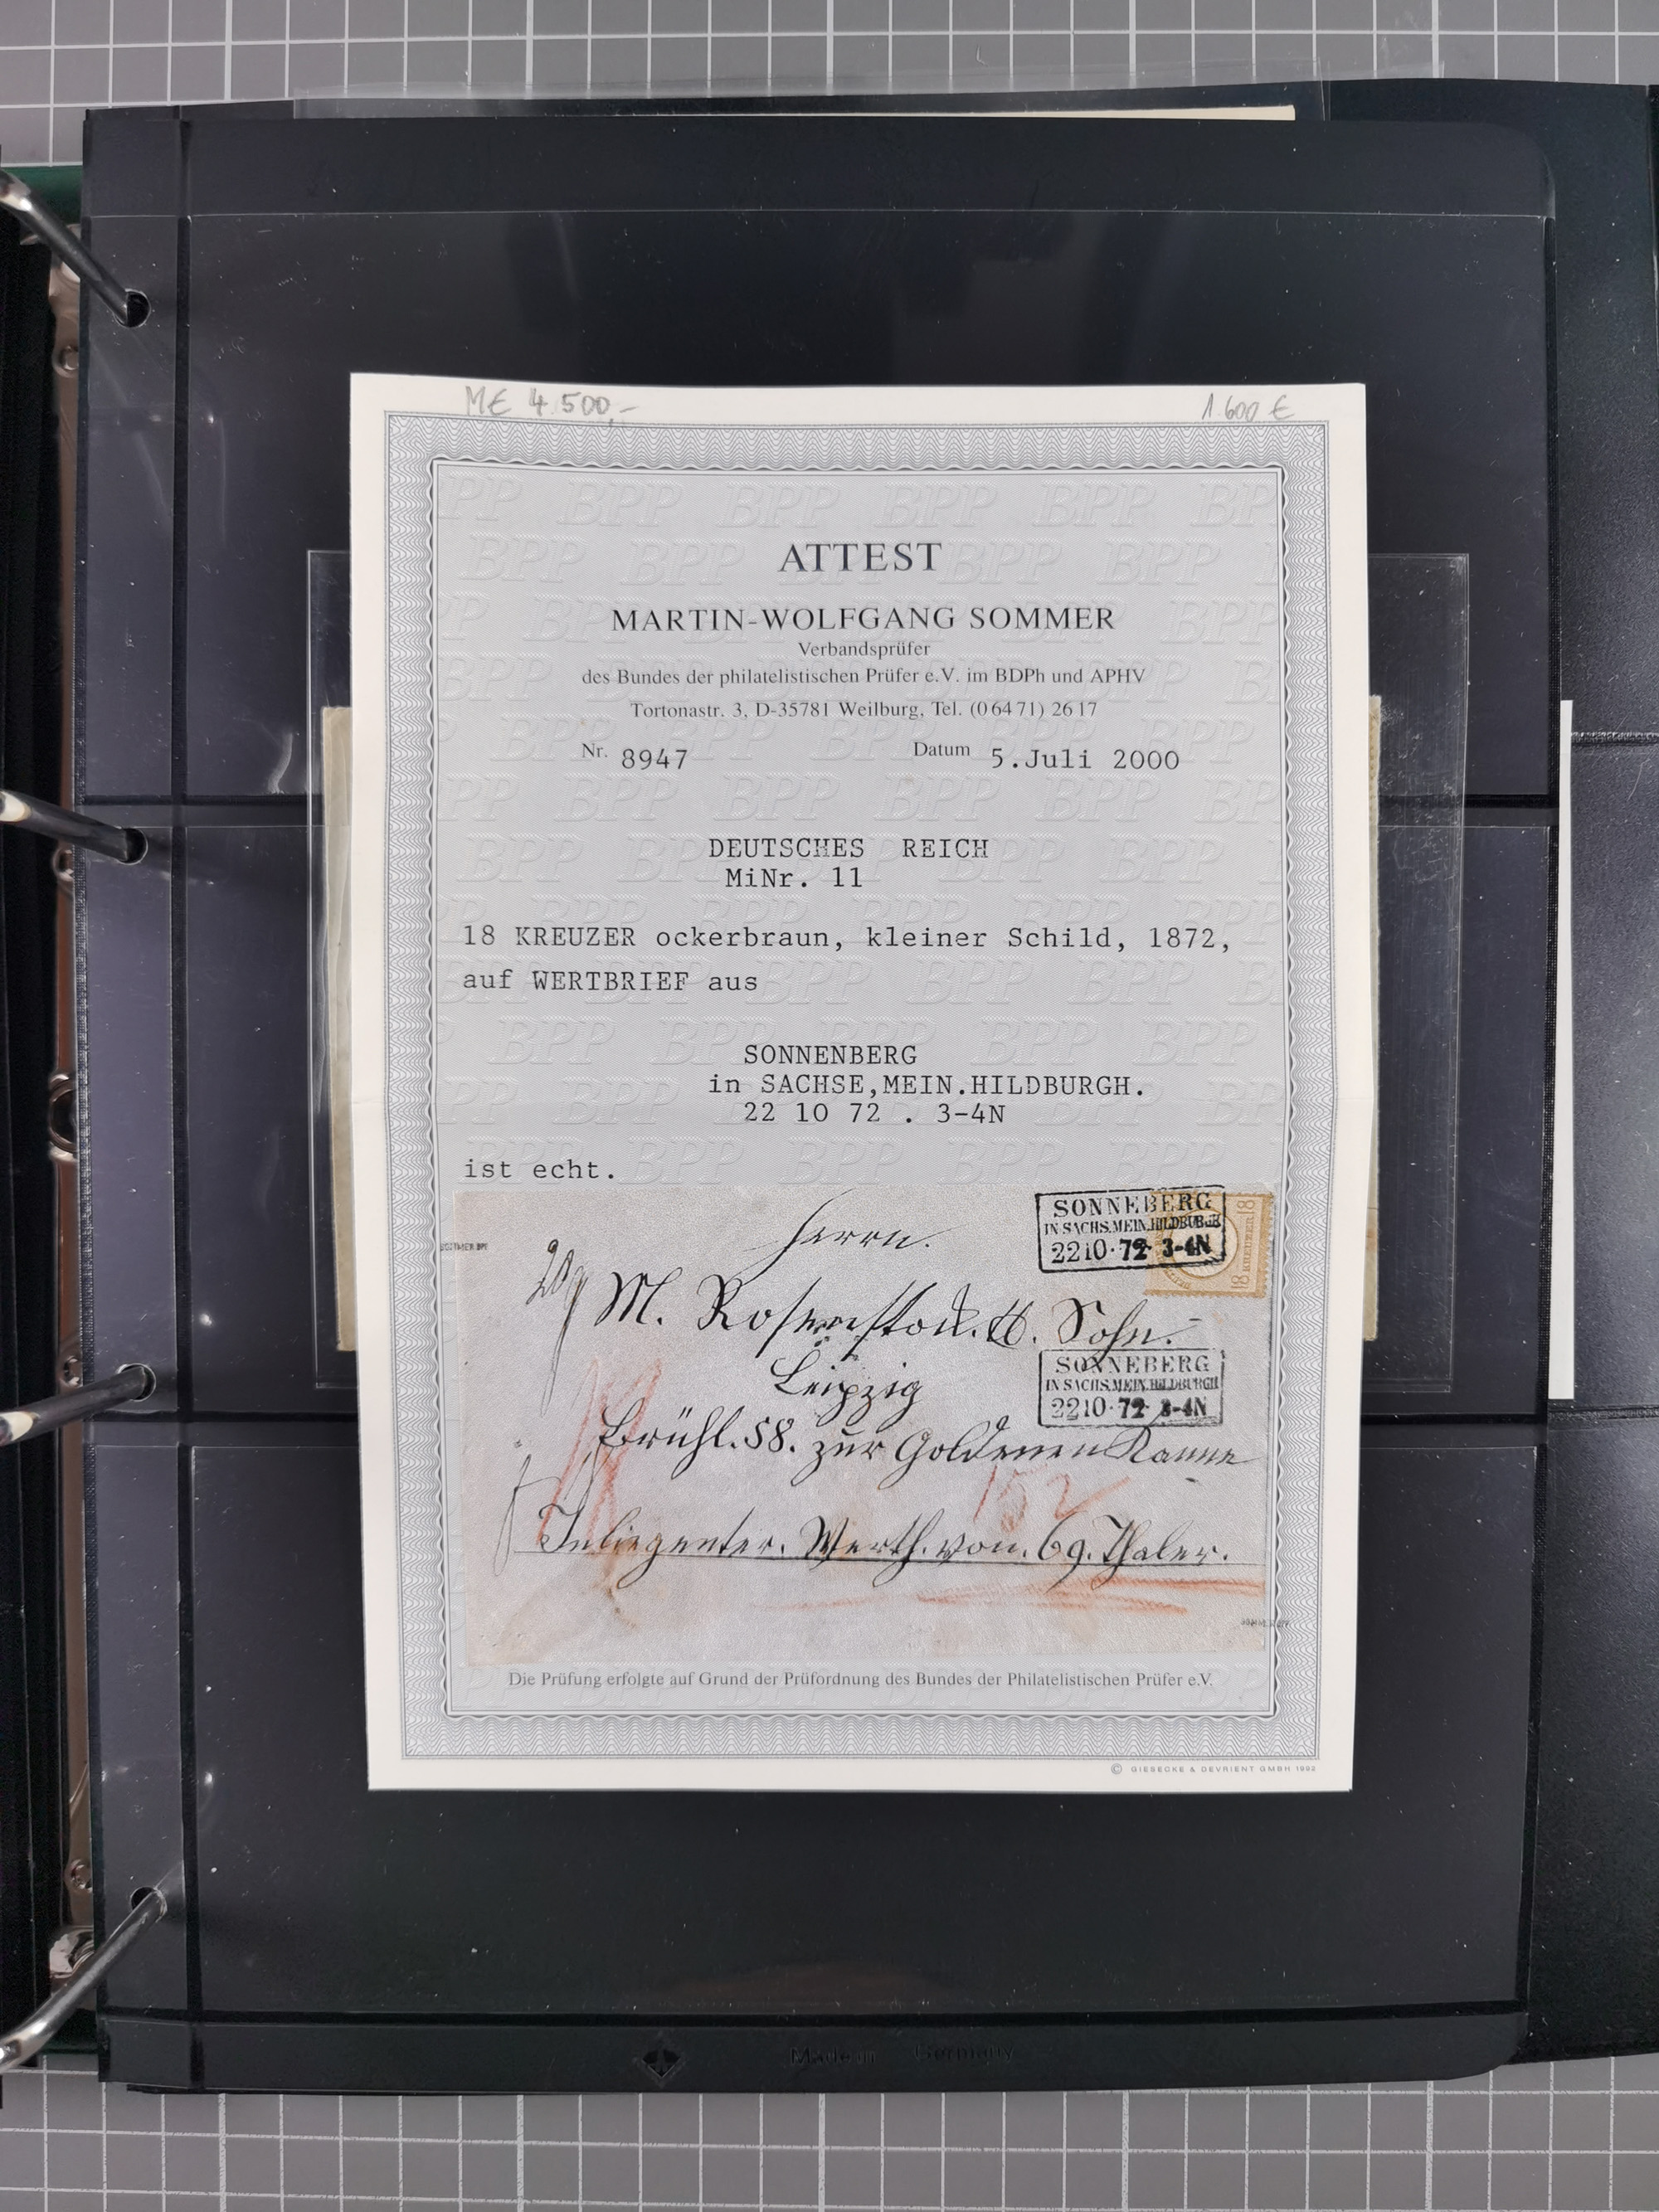 M€ 4.500,-
1.600 €
ATTEST
MARTIN-WOLFGANG SOMMER
Verbandsprüfer
des Bundes der philatelistischen Prüfer e.V. im BDPh und APHV
Tortonastr. 3, D-35781 Weilburg, Tel. (0 64 71) 26 17
Nr. 8947 Datum 5.Juli 2000
DEUTSCHES REICH
MiNr. 11
18 KREUZER ockerbraun, kleiner Schild, 1872,
auf WERTBRIEF aus
SONNENBERG
in SACHSE,MEIN.HILDBURGH.
22 10 72 . 3-4N
ist echt.
SONNEBERG
IN SACHS.MEIN.HILDBURGH
22 10 · 72 3-4N
18 KREUZER 18
Herrn.
M. Rosenstock. & Sohn.
Leipzig
SONNEBERG
IN SACHS.MEIN.HILDBURGH
22 10 · 72 3-4N
Brühl. 58. zur Goldenen Kanne
152
Inliegenter. Werth. von. 69. Thaler.
SOMMER BPP
Die Prüfung erfolgte auf Grund der Prüfordnung des Bundes der Philatelistischen Prüfer e.V.
© GIESECKE & DEVRIENT GMBH 1992
Made in Germany